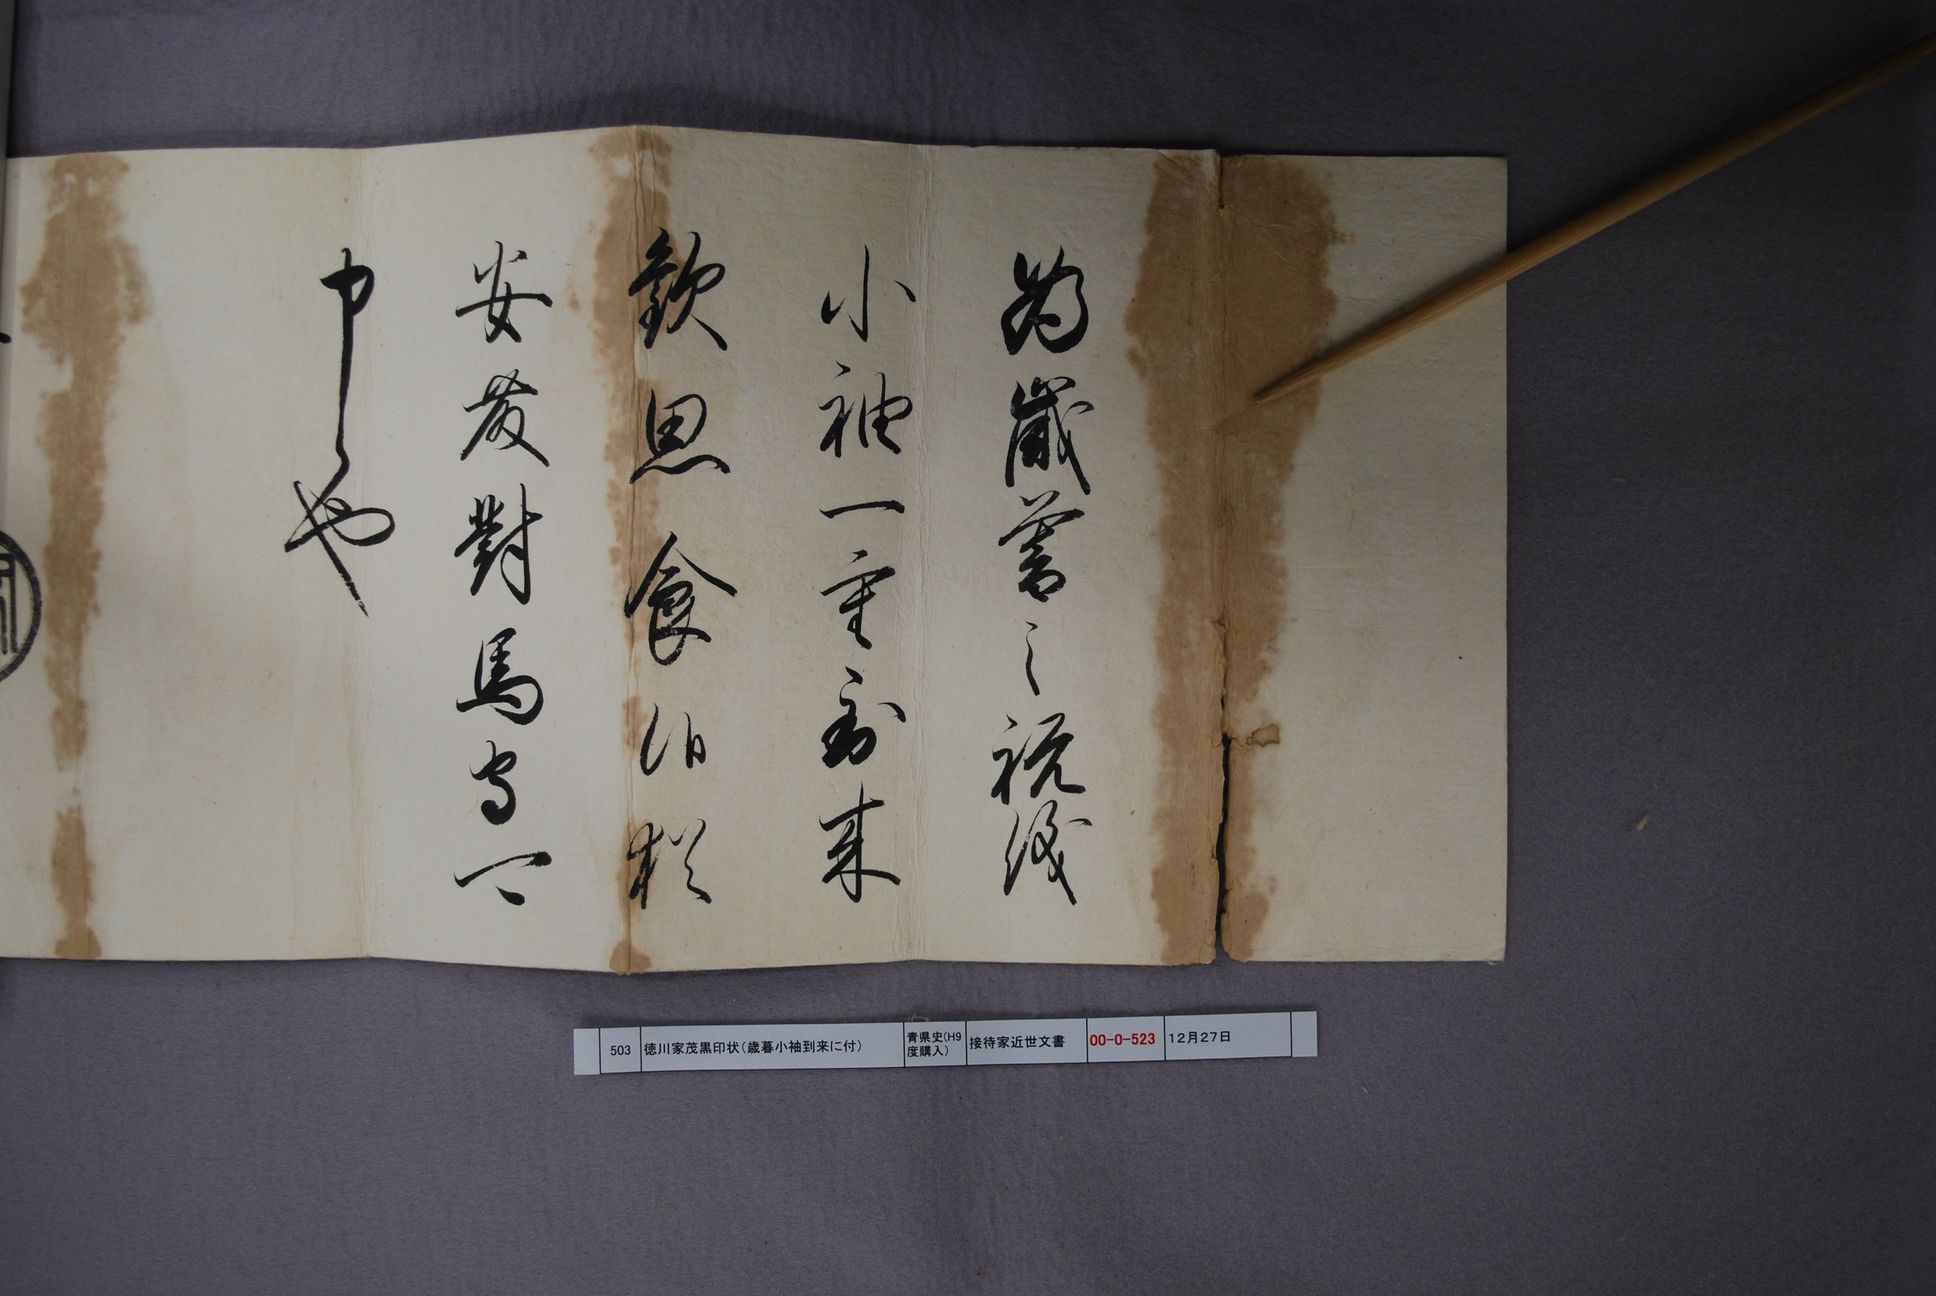 為歳暮之祝儀
小袖一重到来
歓思食候猶
安藤對馬守可
申候也
503 徳川家茂黒印状(歳暮小袖到来に付) 青県史(H9度購入) 接待家近世文書 00-0-523 12月27日